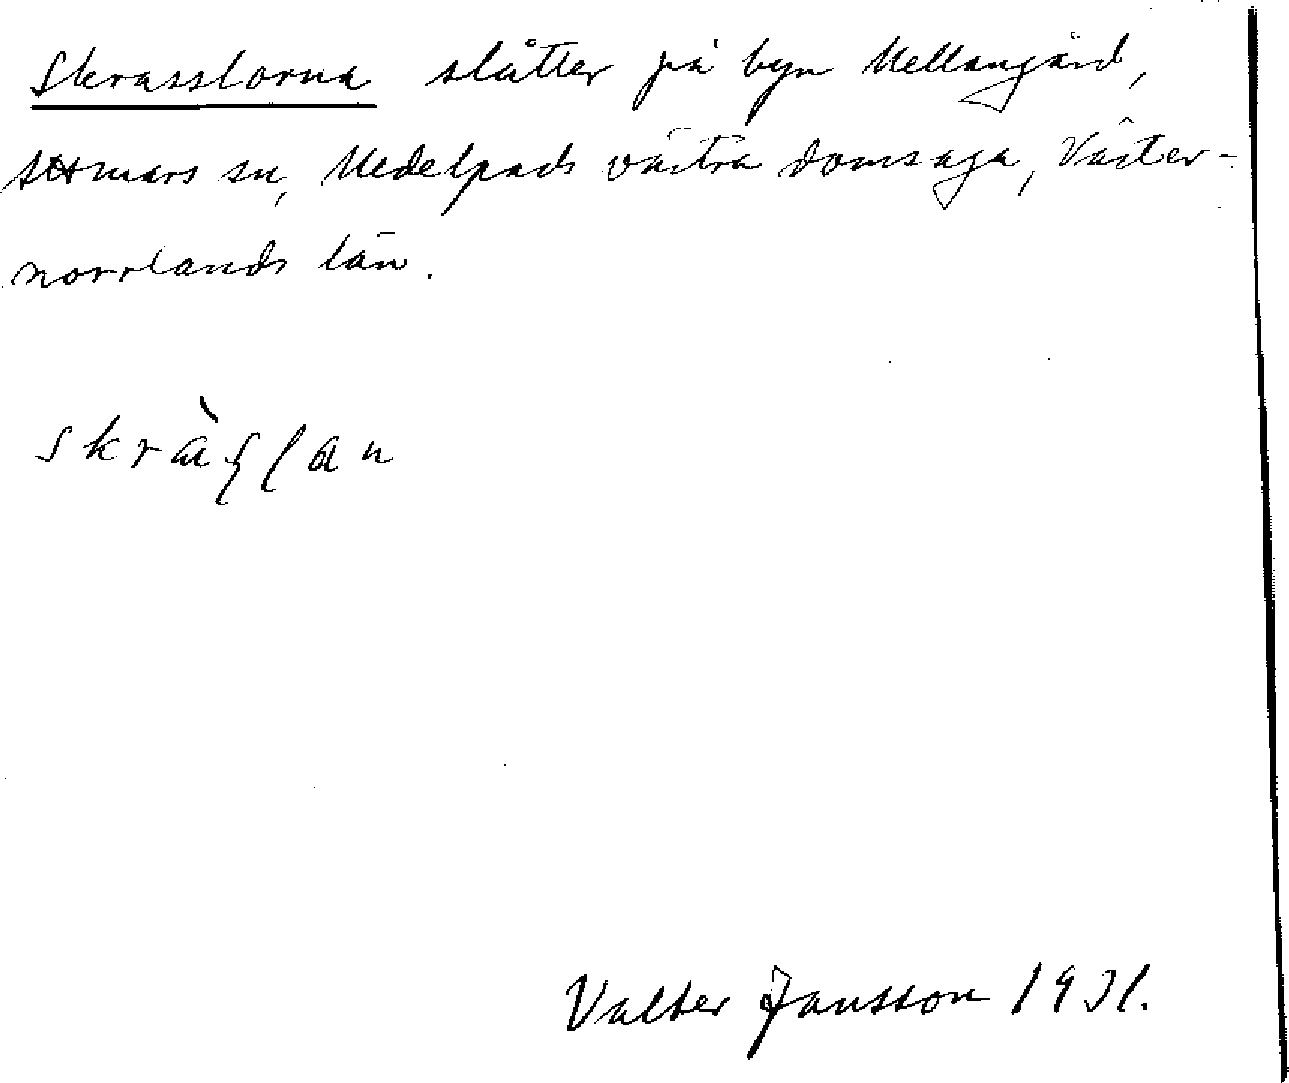 Skrasslorna slåtter på byn Mellangård,
Attmars sn, Medelpads västra domsaga, Väster-
norrlands län.
skràʂlan
Valter Jansson 1931.